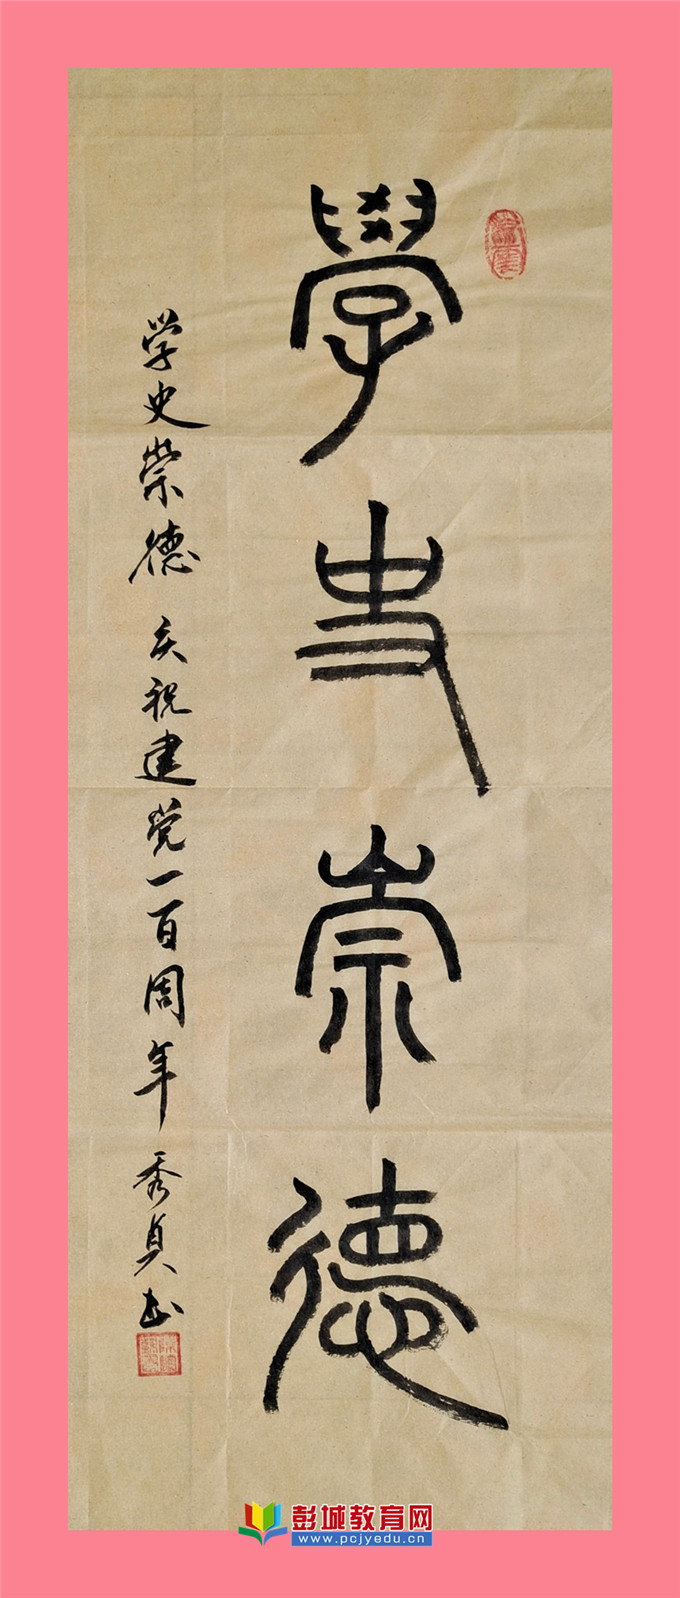 學史崇德
学史崇德 庆祝建党一百周年 秀贞书
彭城教育网
www.pcjyedu.cn